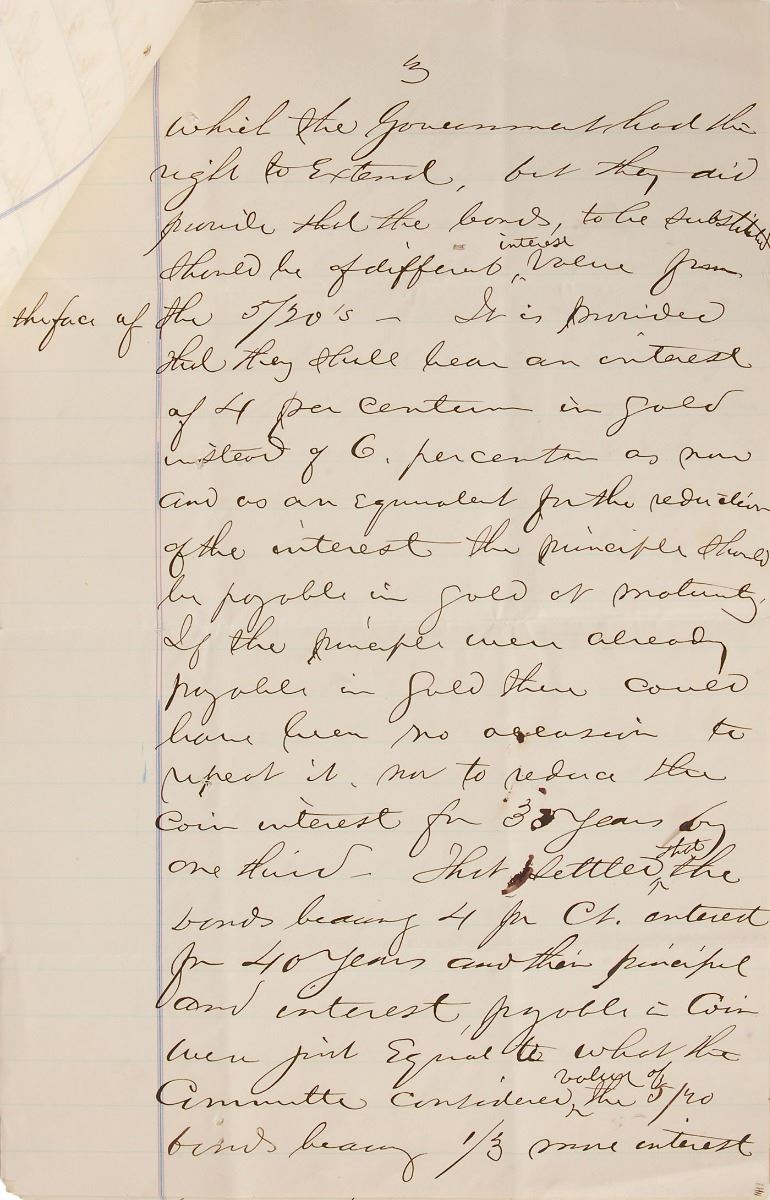 3
which the Government had the
right to Extend, but they did
provide that the bonds, to be substituted
interest
should be of different ‸ value from
the face of the 5/20's — It is provided
that they shall bear an interest
of 4 per centum in gold
instead of 6. per centum as now
and as an equivalent for the reduction
of the interest the principle should
be payable in gold at maturity.
If the principle were already
payable in gold there could
have been no occasion to
repeat it, nor to reduce the
coin interest for 35 years by
one third — That settled ‸ that the
bonds bearing 4 pr Ct. interest
for 40 years and their principal
and interest, payable in Coin
were just Equal to what the
value of
Committee considered ‸ the 5/20
bonds bearing 1/3 more interest